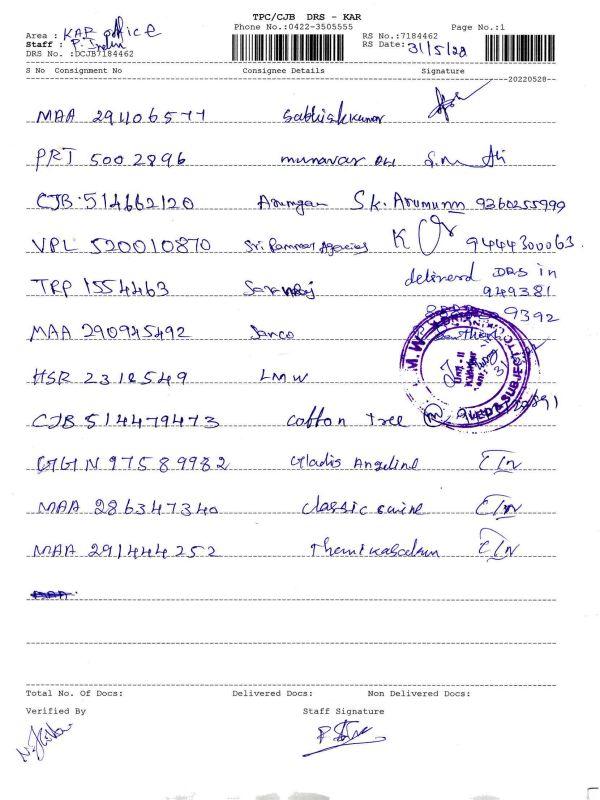 TPC/CJB DRS - KAR
Phone No.:0422-3505555 Page No.:1
Area : KAR office RS No.:7184462
Staff : P. RS Date: 31/5/22
DRS No. :DCJB7184462
S No Consignment No Consignee Details Signature
20220528
MAA 29406577 Sathishkumar
PRT 5002896 munavar Ali S.M Ali
CJB 514662120 Arumugan S.K. Arumum 9360255999
VPL 520010870 Sri Rammat Agencies K 9444300063
TRP 1554463 delivered DRS in
949381
9392
MAA 290945492 Janco
HSR 2312549 LMW
CJB 514479473 Cotton Tree
GGN 97589982 Gladis Angeline
MAA 286347340 classic
MAA 291444252
Total No. Of Docs: Delivered Docs: Non Delivered Docs:
Verified By Staff Signature